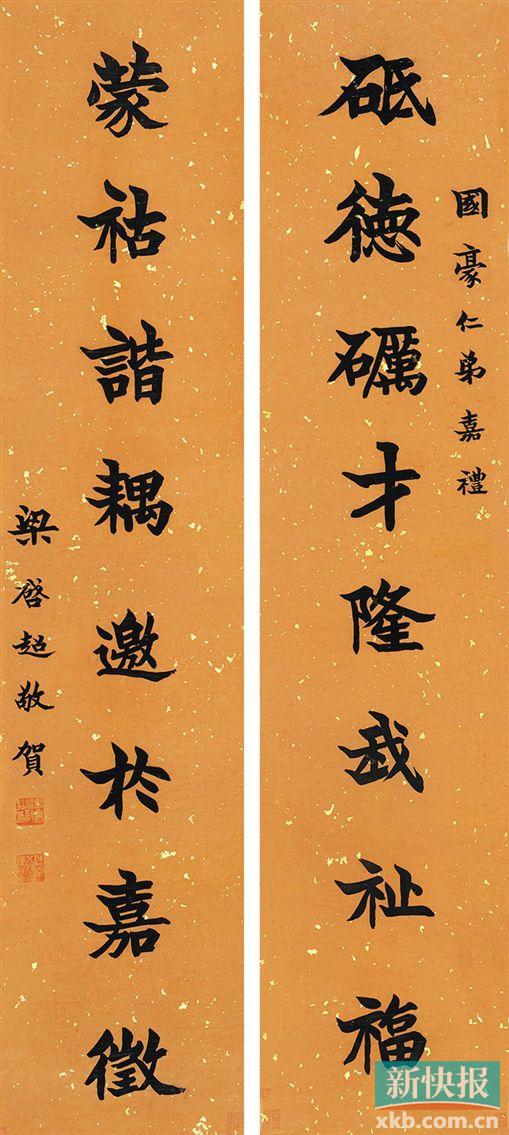 國豪仁弟嘉禮
砥德礪才隆我祉福
蒙祜諧耦邀於嘉徵
梁啓超敬賀
新快报
xkb.com.cn